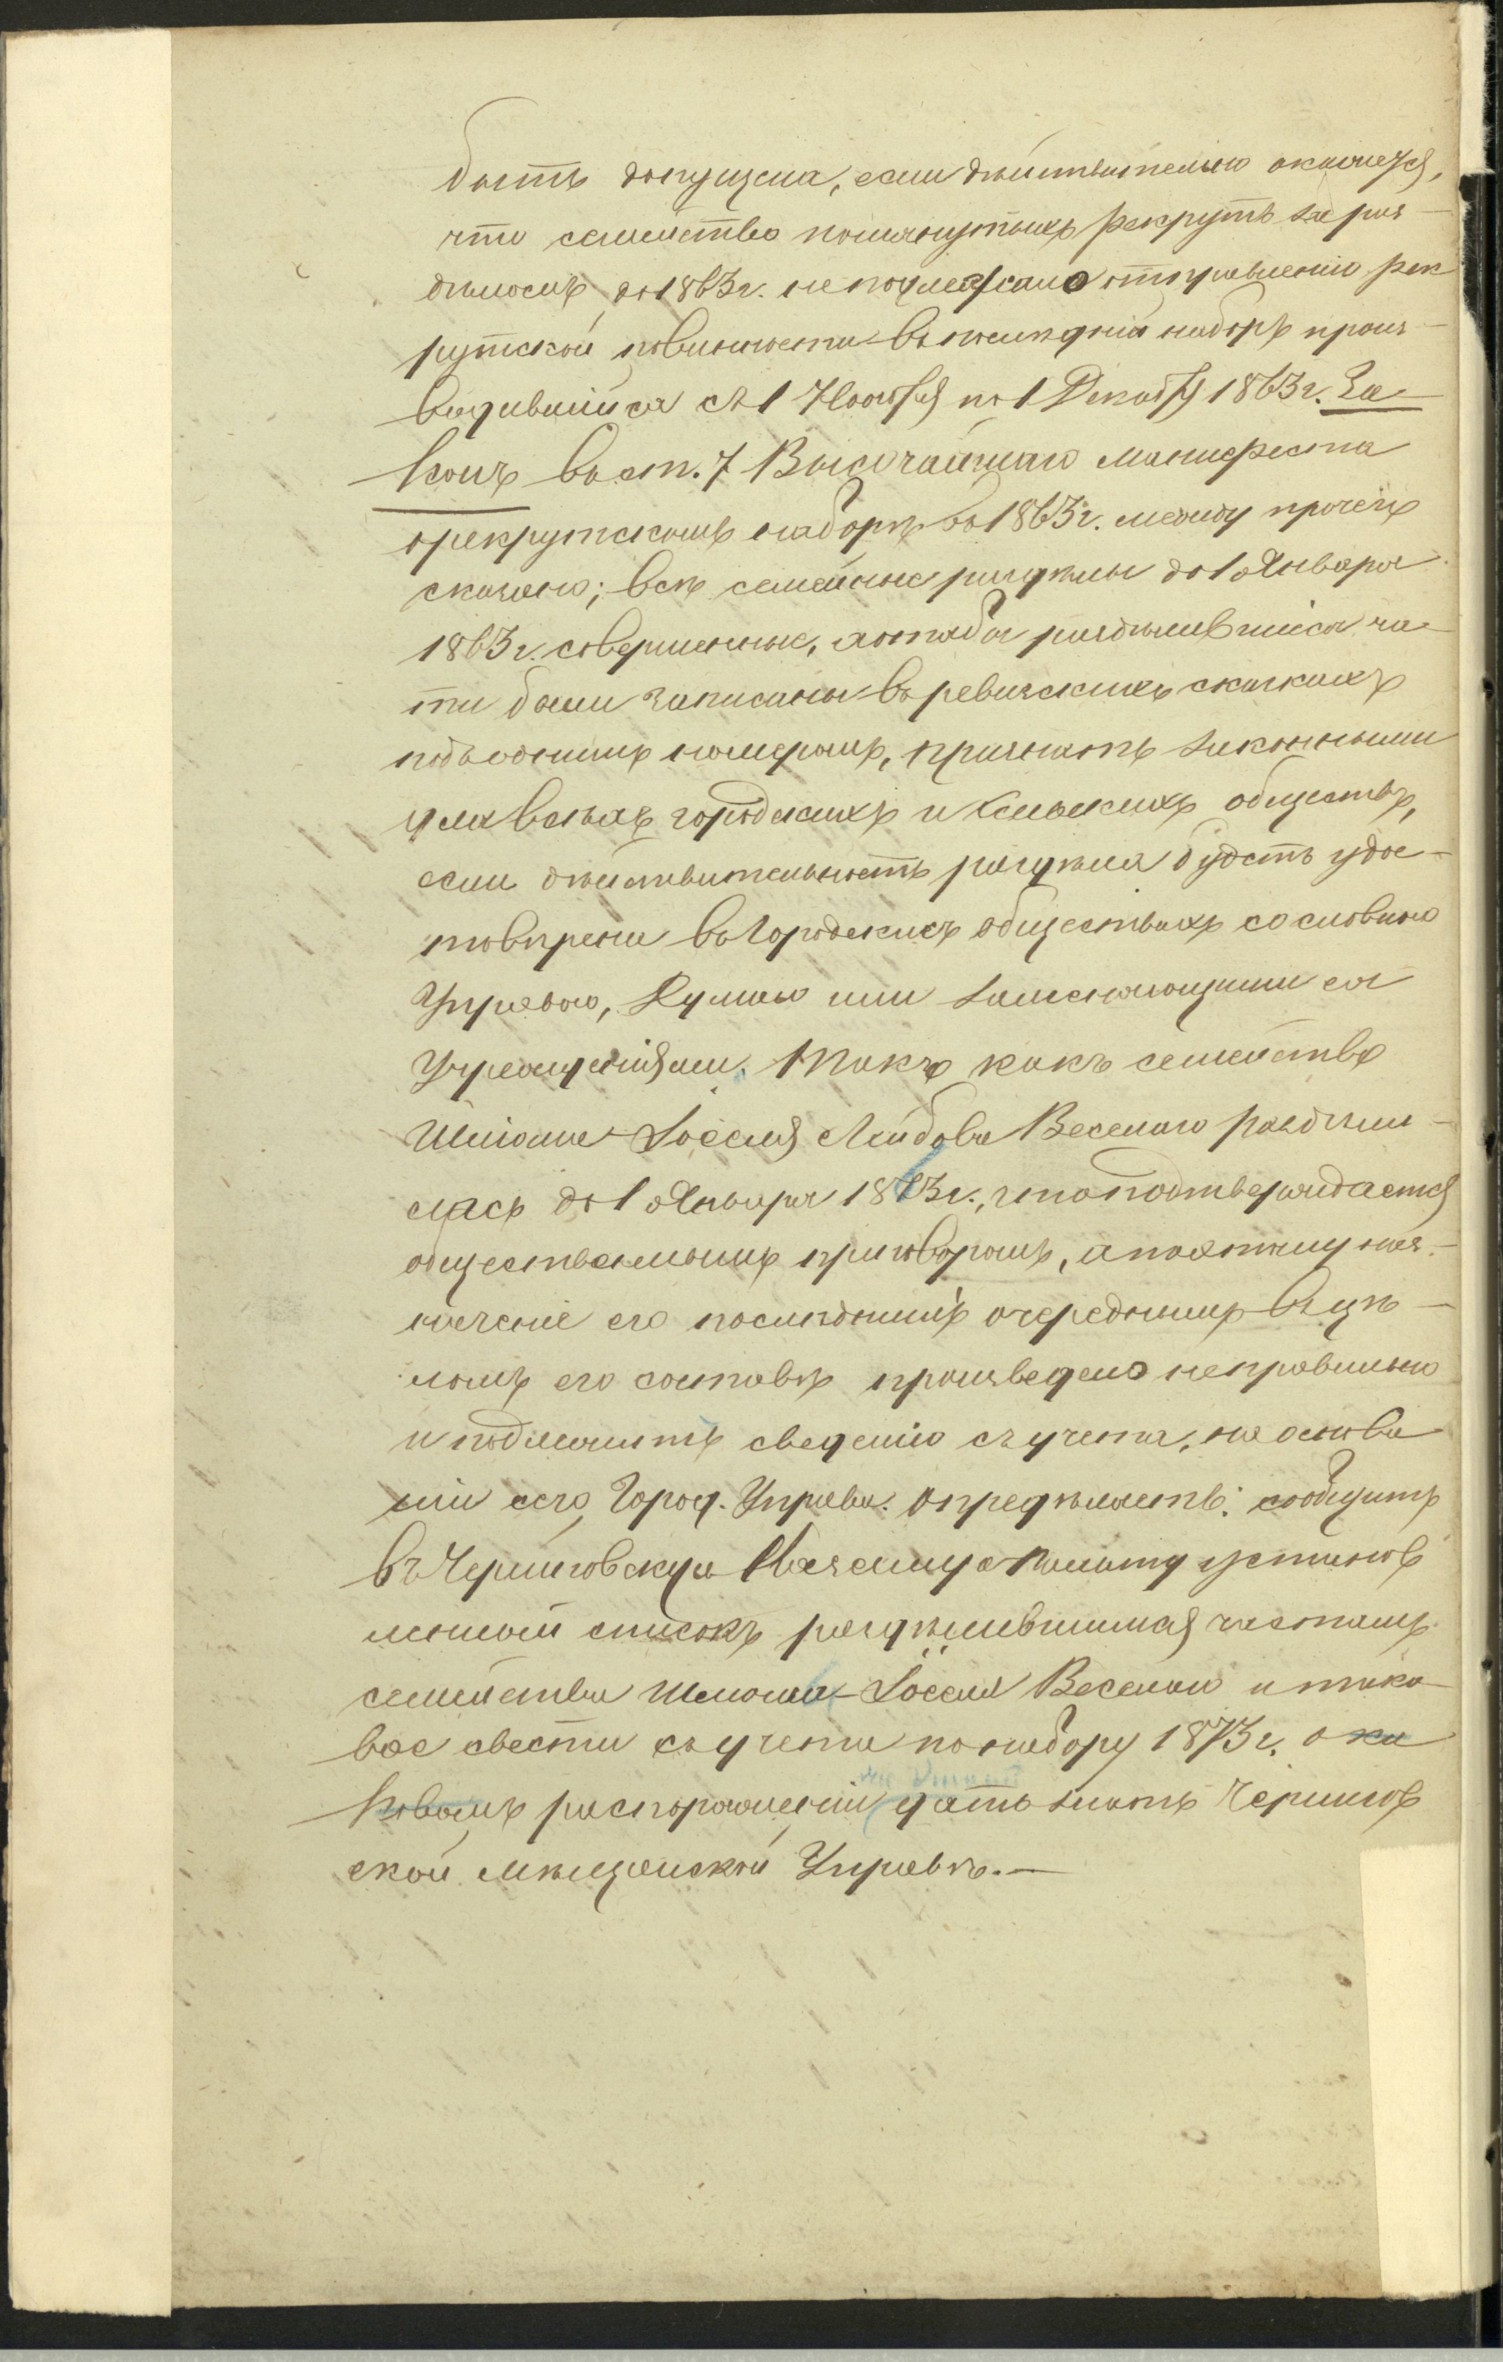 быть допущена, если дѣйствительно окажется,
что семейство помянутыхъ рекрутъ за раз-
дѣломъ до 1863 г. не подлежало отправленію рек
рутской повинности въ послѣдній наборъ произ-
водившійся съ 1 Ноября по 1 Декабря 1863 г. За-
конъ въ ст. 7 Высочайшаго манифеста
о рекрутскомъ наборѣ въ 1863 г. между прочемъ
сказано; всѣ семейные раздѣлы до 1 Января
1863 г. совершенные, хотя бы раздѣлившіяся ча-
сти были записаны въ ревизскихъ сказкахъ
подъ однимъ номеромъ, признать законными
для всѣхъ городскихъ и сельскихъ обществъ,
если дѣйствительность раздѣла будетъ удос-
товѣрена въ городскихъ обществахъ сословною
Управою, Думою или замѣняющими ея
Учрежденіями. Такъ какъ семейство
Шліома-Іосселя Лейбова Веселаго раздѣли-
лась до 1 Января 1863 г., что подтверждается
общественнымъ приговоромъ, а поэтому наз-
наченіе его послѣднимъ очереднымъ въ цѣ-
ломъ его составѣ произведено неправильно
и подлежитъ сведенію съ учета, на основа
ніи сего Город. Управа. опредѣляетъ: сообщить
въ Черниговскую Казенную Палату установ
ленный списокъ раздѣлившимся частямъ
семейства Шліома-Іосселя Веселаго и тако-
вое свести съ учета по набору 1873 г. о ка
ковомъ распоряженіи дать знать Чернигов
ской мѣщанской Управѣ.—